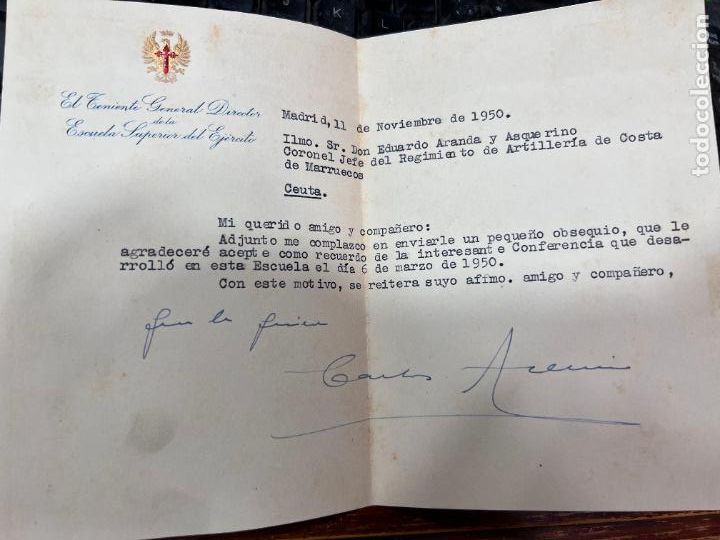 El Teniente General Director
de la
Escuela Superior del Ejército
Madrid, 11 de Noviembre de 1950.
Ilmo. Sr. Don Eduardo Aranda y Asquerino
Coronel Jefe del Regimiento de Artillería de Costa
de Marruecos
Ceuta.
Mi querido amigo y compañero:
Adjunto me complazco en enviarle un pequeño obsequio, que le
agradeceré acepte como recuerdo de la interesante Conferencia que desa-
rrolló en esta Escuela el día 6 de marzo de 1950.
Con este motivo, se reitera suyo afimo. amigo y compañero,
Carlos
todocoleccion